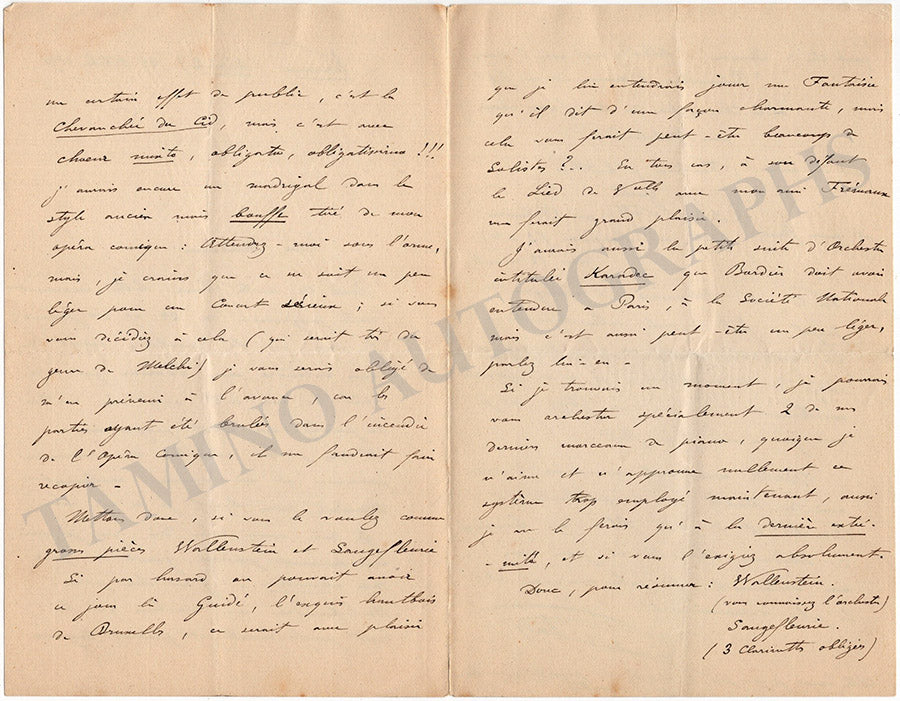 un certain effet de public, c'est la
Chevauchée du Cid, mais c'est avec
choeur mixte, obligato, obligatissimo !!!
j'aurais encore un madrigal dans le
style ancien mais bouffe tiré de mon
opéra comique : Attendez-moi sous l'orme,
mais, je crains que ce ne soit un peu
léger pour un Concert sérieux ; si vous
vous décidiez à cela (qui serait très du
genre de Melchi) je vous serais obligé de
m'en prévenir à l'avance, car les
parties ayant été brulées dans l'incendie
de l'Opéra Comique, il me faudrait faire
recopier -
Mettons donc, si vous le voulez comme
grosses pièces Wallenstein et Saugefleurie
Si par hasard on pouvait avoir
ce jour là Guidé, l'exquis hautbois
de Bruxelles, ce serait avec plaisir
que je lui entendrais jouer une Fantaisie
qu'il dit d'une façon charmante, mais
cela vous ferait peut-être beaucoup de
Solistes ?.. En tous cas, à son défaut
le Lied de Vclle avec mon ami Frémaux
me ferait grand plaisir.
J'aurais aussi la petite suite d'Orchestre
intitulée Karadec que Bordès doit avoir
entendue à Paris, à la Société Nationale
mais c'est aussi peut-être un peu léger,
parlez lui-en -
Si je trouvais un moment, je pourrais
vous orchestrer spécialement 2 de mes
derniers morceaux de piano, quoique je
n'aime et n'approuve nullement ce
système trop employé maintenant, aussi
je ne le ferais qu'à la dernière extré-
-mité, et si vous l'exigez absolument.
Donc, pour résumer : Wallenstein.
(vous connaissez l'orchestre)
Saugefleurie.
(3 Clarinettes obligées)
TAMINO AUTOGRAPHS